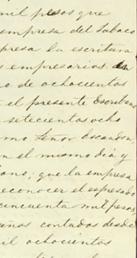 mil pesos que
empresa del tabaco
presa la escritura
s empresarios
o de ochocientos
el presente Escribano
setecientos ocho
mo Señor
n el mismo dia y
ano, que la empresa
econocer el espresado
cincuenta mil pesos
años contados desde
il ochocientos